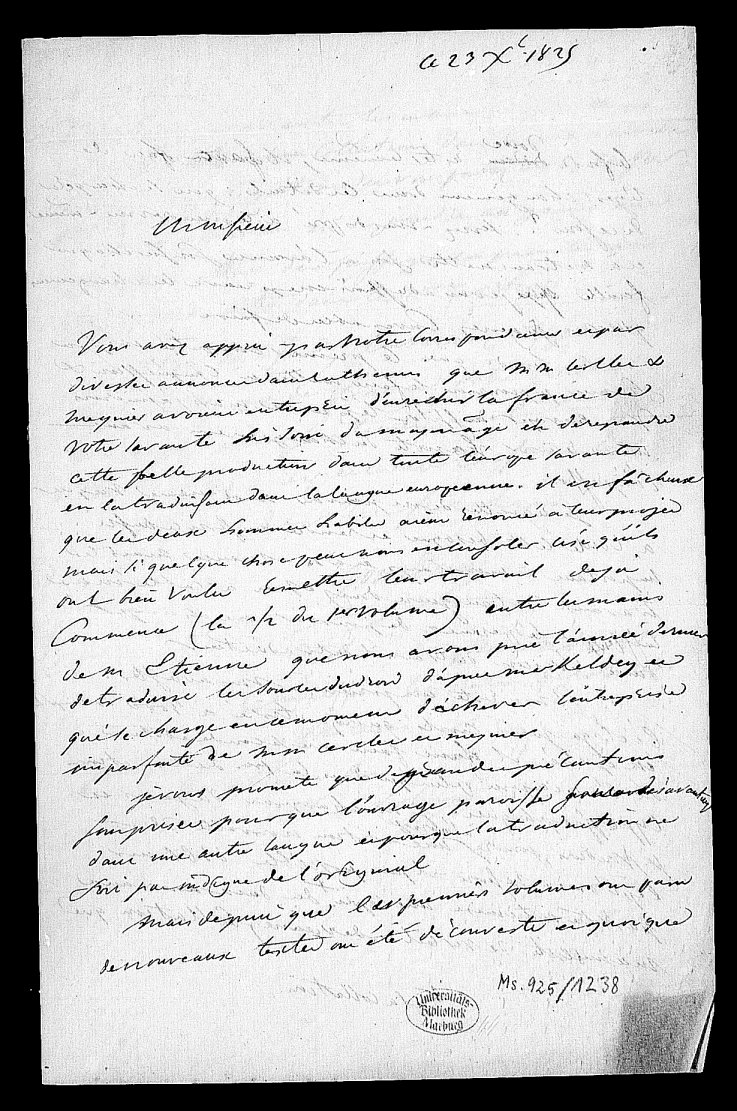 ce 23 Xc. 1825
Monsieur
Vous avez appris par Notre Correspondance et par
diverses annonces dans la themis que M M Cerclet &
meynier avoient entrepris d'enrichir la france de
Votre savante histoire du moyen age et de repandre
cette belle production dans toute l'europe savante
en la traduisant dans la langue europeenne. il est facheux
que les deux hommes habiles aient renoncé a leur projet
mais si quelque chose peut nous en consoler c'est qu'ils
ont bien voulu remettre leur travail deja
Commencé (la 1/2 du 1er Volume) entre les mains
de m. Etienne que nous avons prié l'année derniere
de traduire les sources du droit d'apres mr Keldey et
qui se charge en ce moment d'achever l'entreprise
imparfaite de M M cerclet et meynier
je vous promets que de grandes précautions
sont prises pour que l'ouvrage paroisse
dans une autre langue et pour que la traduction ne
soit pas indigne de l'original
mais depuis que les premiers Volumes ont paru
de nouveaux textes ont été découverts et quoique
Ms. 925/1238
Universitäts-
Bibliothek
Marburg